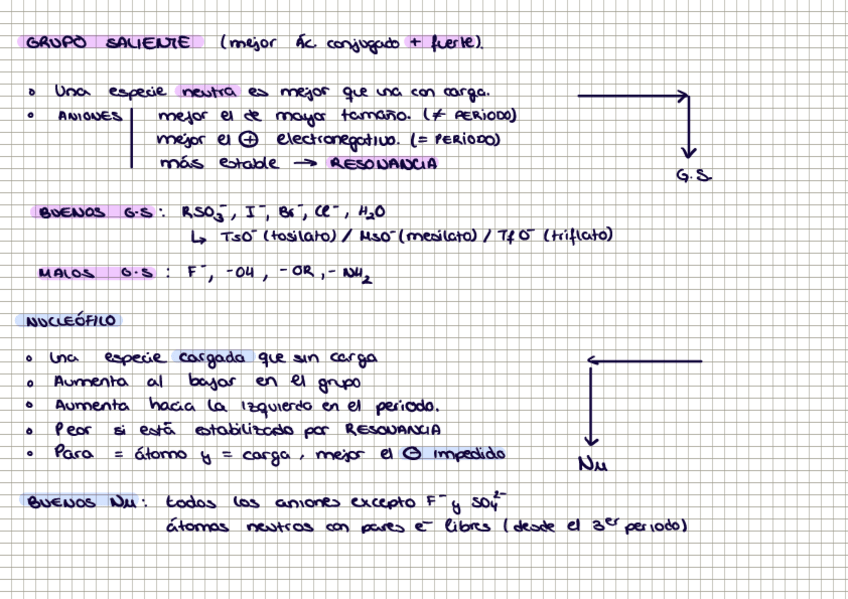 GRUPO SALIENTE (mejor Ác conjugado + fuerte).
• Una especie neutra es mejor que una con carga.
• ANIONES | mejor el de mayor tamaño. (≠ PERÍODO)
mejor el ⊕ electronegativo. (= PERÍODO)
más estable → RESONANCIA
G.S.
BUENOS G.S: RSO₃⁻, I⁻, Br⁻, Cl⁻, H₂O
↳ TsO⁻ (tosilato) / MsO⁻ (mesilato) / TfO⁻ (triflato)
MALOS G.S : F⁻, -OH, -OR, -NH₂
NUCLEÓFILO
• Una especie cargada que sin carga
• Aumenta al bajar en el grupo
• Aumenta hacia la izquierda en el periodo.
• Peor si está estabilizado por RESONANCIA
• Para = átomo y = carga, mejor el ⊖ impedido
Nu
BUENOS Nu: todos los aniones excepto F⁻ y SO₄²⁻
átomos neutros con pares e⁻ libres (desde el 3er periodo)